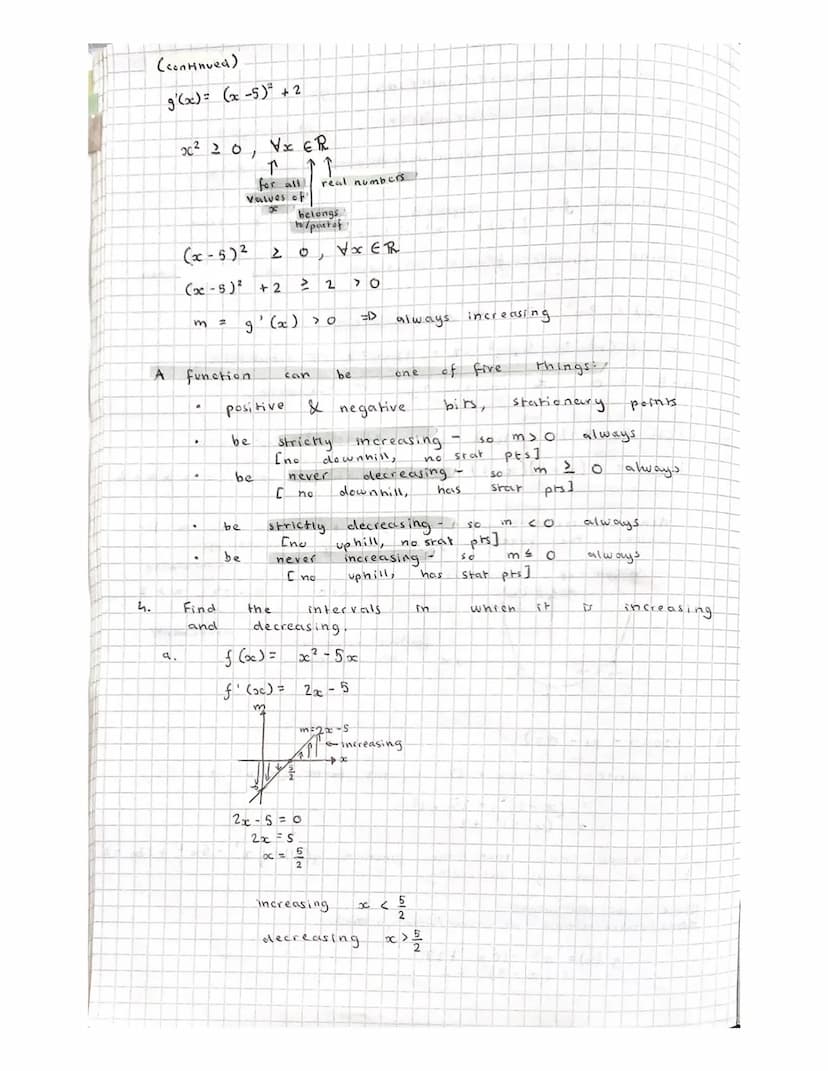 (continued)
g'(x) = (x-5)² + 2
x² ≥ 0, ∀x ∈ ℝ
↑ ↑ ↑
for all values of x
real numbers
belongs to/part of
(x-5)² ≥ 0, ∀x ∈ ℝ
(x-5)² + 2 ≥ 2 > 0
m = g'(x) > 0 ⇒ always increasing
A function can be one of five things:
• positive & negative bits, stationary points
• be strictly increasing - so m > 0 always
[no downhill, no stat pts]
• be never decreasing - so m ≥ 0 always
[no downhill, has stat pts]
• be strictly decreasing - so m < 0 always
[no uphill, no stat pts]
• be never increasing - so m ≤ 0 always
[no uphill, has stat pts]
4. Find the intervals in which it is increasing
and decreasing.
a. f(x) = x² - 5x
f'(x) = 2x - 5
m
m=2x-5
← increasing
x
5/2
2x - 5 = 0
2x = 5
x = 5/2
increasing x < 5/2
decreasing x > 5/2